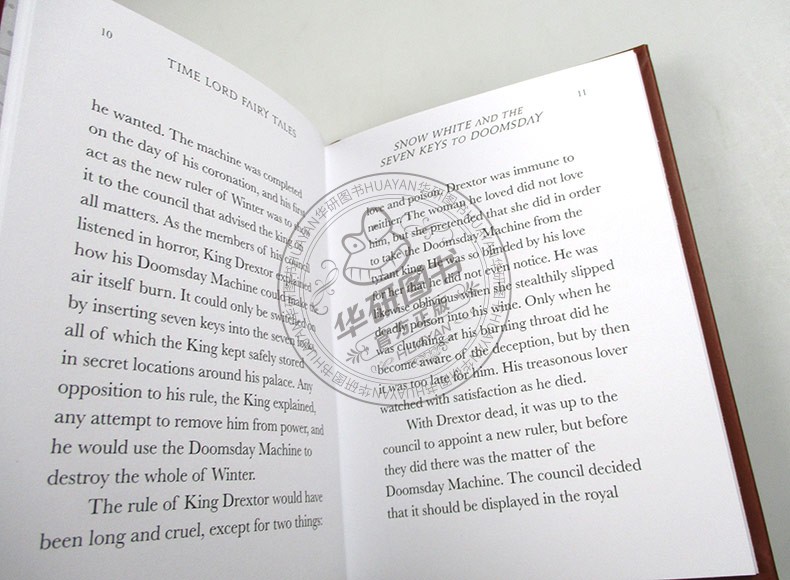 10
TIME LORD FAIRY TALES
he wanted. The machine was completed
on the day of his coronation, and his first
act as the new ruler of Winter was to
it to the council that advised the king on
all matters. As the members of his council
listened in horror, King Drextor explained
how his Doomsday Machine could make the
air itself burn. It could only be switched on
by inserting seven keys into the seven locks,
all of which the King kept safely stored
in secret locations around his palace. Any
opposition to his rule, the King explained,
any attempt to remove him from power, and
he would use the Doomsday Machine to
destroy the whole of Winter.
The rule of King Drextor would have
been long and cruel, except for two things:
11
SNOW WHITE AND THE
SEVEN KEYS TO DOOMSDAY
love and poison. Drextor was immune to
neither. The woman he loved did not love
him, but she pretended that she did in order
to take the Doomsday Machine from the
tyrant king. He was so blinded by his love
for her that he did not even notice. He was
likewise oblivious when she stealthily slipped
deadly poison into his wine. Only when he
was clutching at his burning throat did he
become aware of the deception, but by then
it was too late for him. His treasonous lover
watched with satisfaction as he died.
With Drextor dead, it was up to the
council to appoint a new ruler, but before
they did there was the matter of the
Doomsday Machine. The council decided
that it should be displayed in the royal
华研图书HUAYAN华研图书HUAYAN华研图书HUAYAN华研图书HUAYAN
华研图书
官方正版
HUAYAN